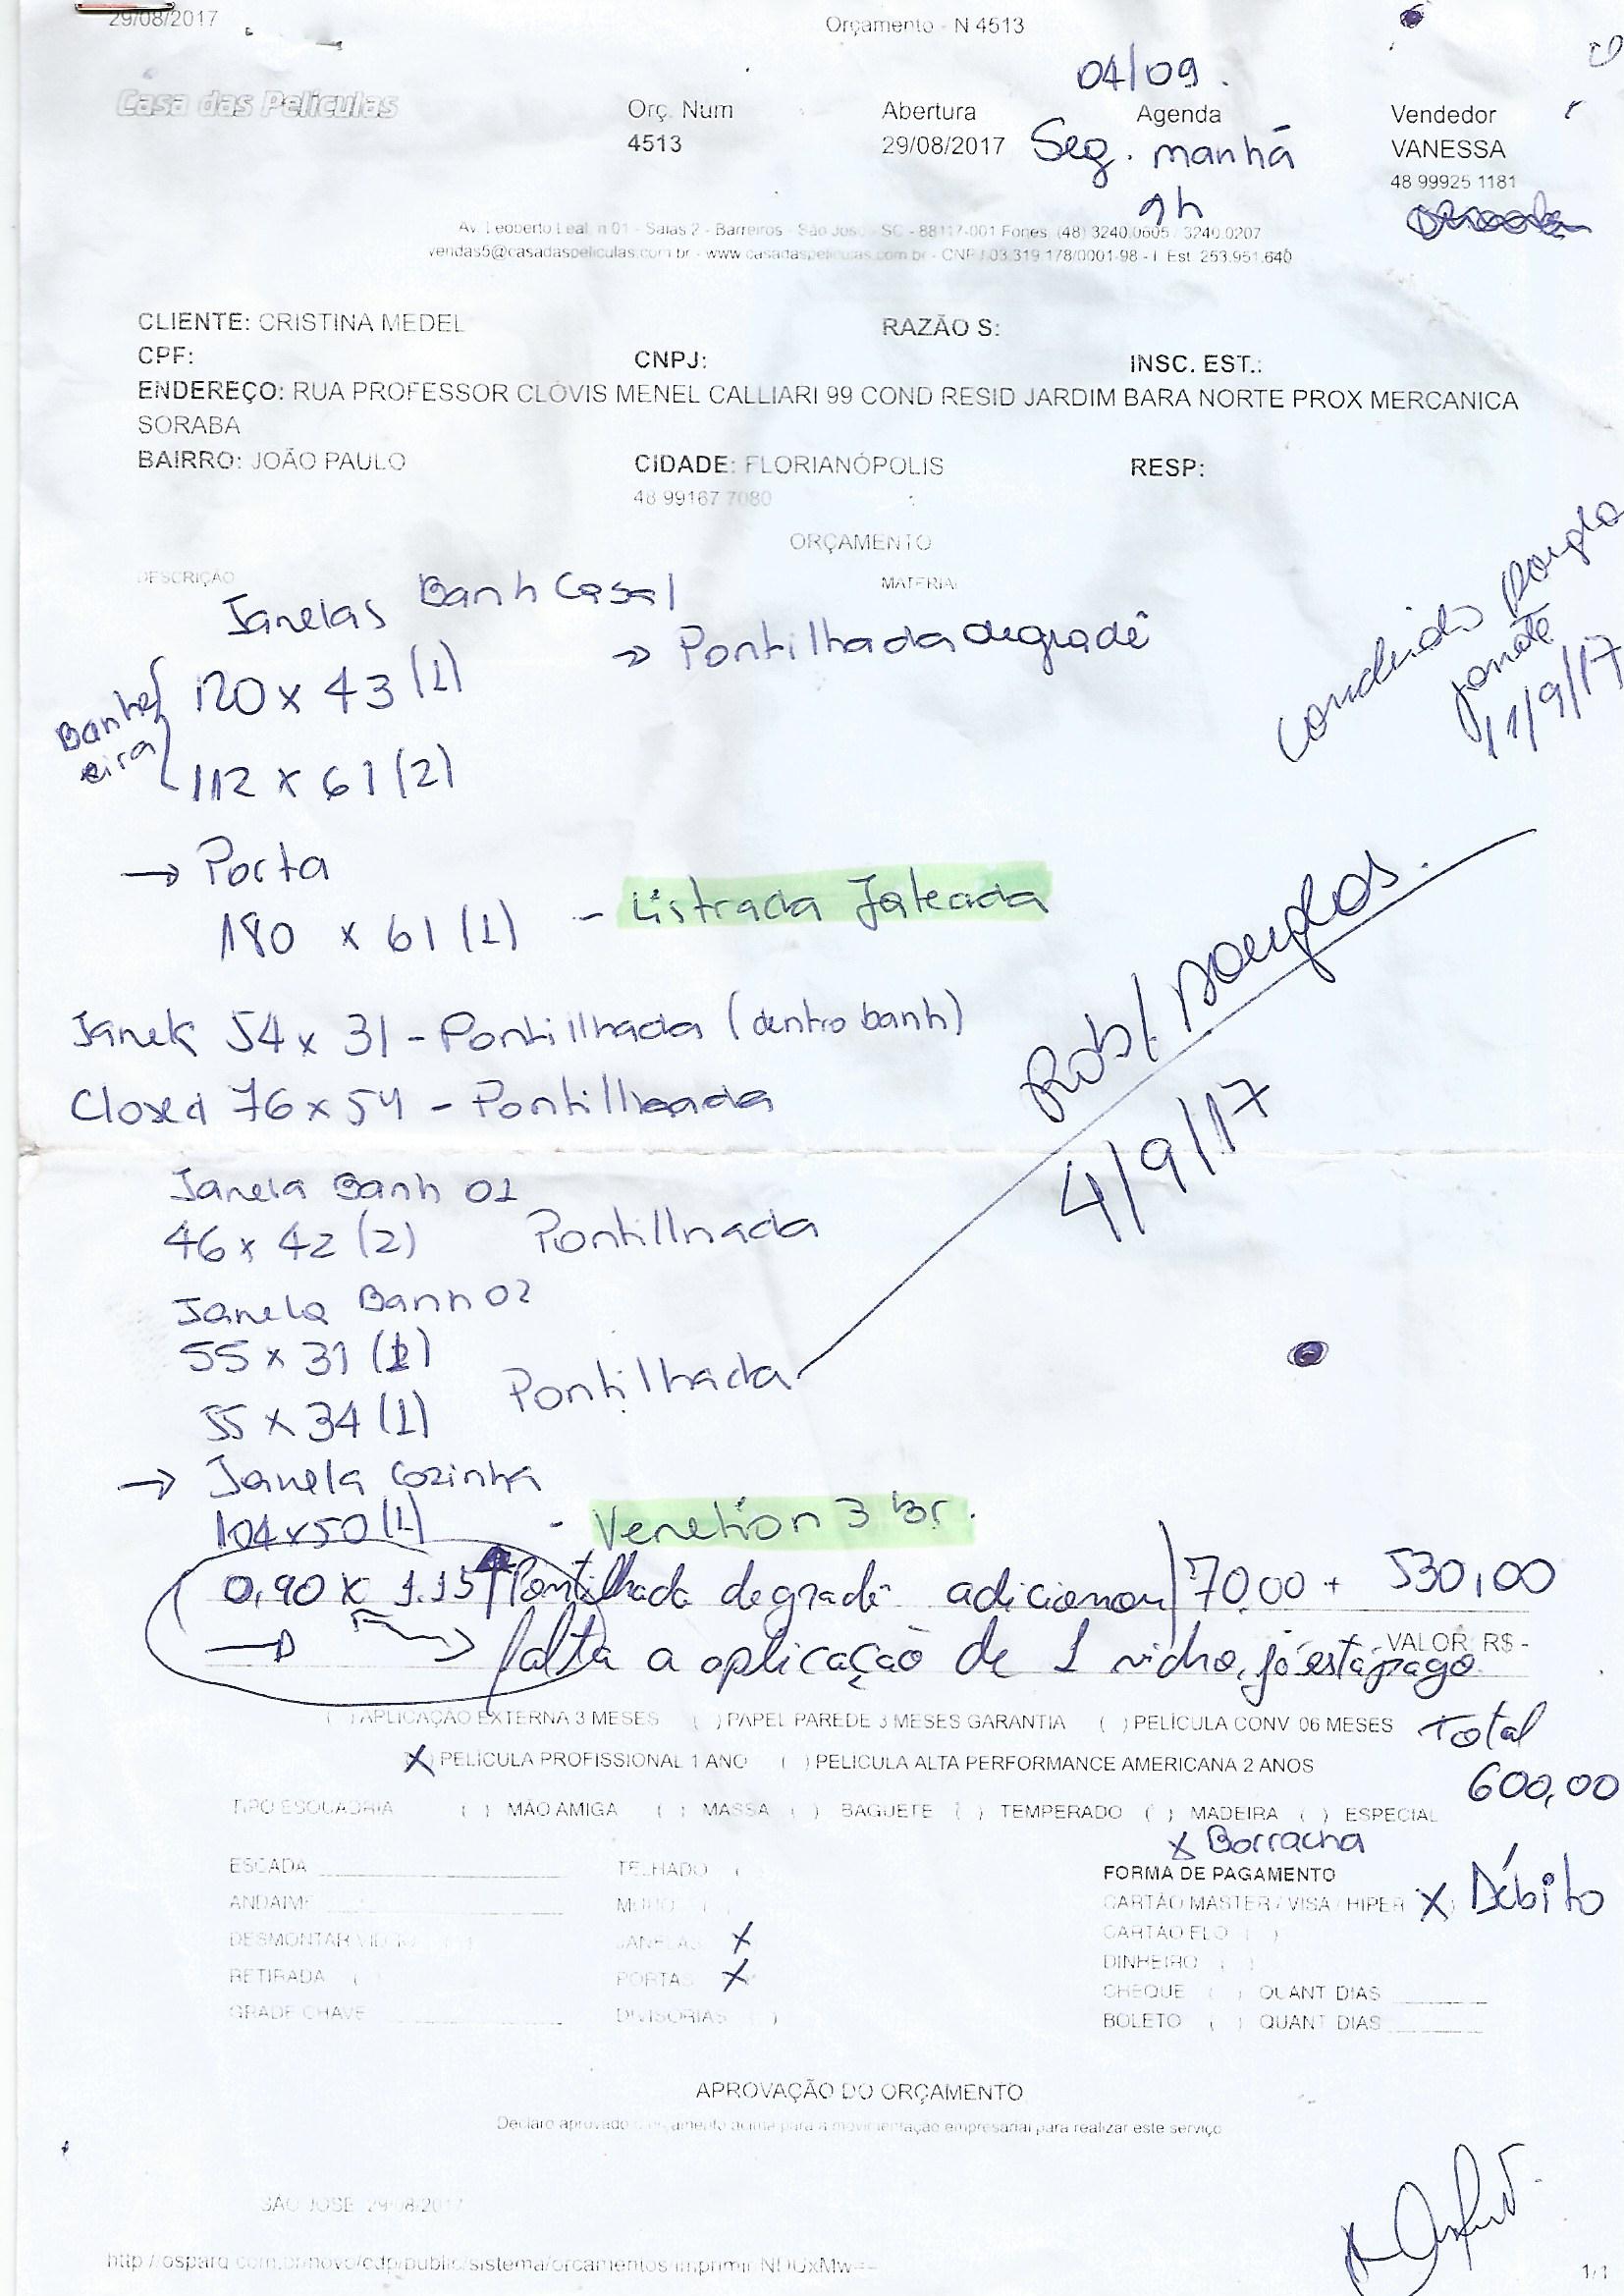 29/08/2017
Orçamento - N 4513
04/09.
Casa das Películas
Orç. Num
Abertura
Agenda
Vendedor
4513
29/08/2017
Seg. manhã
VANESSA
48 99925 1181
9h
Av. Leoberto Leal, n 01 - Salas 2 - Barreiros - São José - SC - 88117-001 Fones (48) 3240.0605 / 3240.0207
vendas5@casadaspeliculas.com.br - www.casadaspeliculas.com.br - CNPJ 03.319.178/0001-98 - I. Est. 253.951.640
CLIENTE: CRISTINA MEDEL
RAZÃO S:
CPF:
CNPJ:
INSC. EST.:
ENDEREÇO: RUA PROFESSOR CLÓVIS MENEL CALLIARI 99 COND RESID JARDIM BARA NORTE PROX MERCANICA
SORABA
BAIRRO: JOÃO PAULO
CIDADE: FLORIANÓPOLIS
RESP:
48 99167 7080
ORÇAMENTO
DESCRIÇÃO
MATERIAL
Janelas Banh Casal
→ Pontilhada degradê
120 x 43 (1)
Banheira
112 x 61 (2)
11/9/17
→ Porta
180 x 61 (1) - Listrada Jateada
Rob/ Douglas.
4/9/17
Janela 54 x 31 - Pontilhada (dentro banh)
Closed 76 x 54 - Pontilhada
Janela Banh 01
46 x 42 (2) Pontilhada
Janela Banh 02
55 x 31 (1)
Pontilhada
55 x 34 (1)
→ Janela Cozinha
104 x 50 (1) - Venetion 3 br.
0,90 x 1.15 Pontilhada degradê adicionou 70,00 + 530,00
VALOR R$ -
→ falta a aplicação de 1 vidro, já está pago
( ) APLICAÇÃO EXTERNA 3 MESES ( ) PAPEL PAREDE 3 MESES GARANTIA ( ) PELÍCULA CONV 06 MESES
Total
(X) PELÍCULA PROFISSIONAL 1 ANO ( ) PELICULA ALTA PERFORMANCE AMERICANA 2 ANOS
600,00
TIPO ESQUADRIA ( ) MÃO AMIGA ( ) MASSA ( ) BAGUETE ( ) TEMPERADO ( ) MADEIRA ( ) ESPECIAL
X Borracha
ESCADA
TELHADO ( )
FORMA DE PAGAMENTO
ANDAIME
MURO ( )
CARTÃO MASTER / VISA / HIPER X Débito
DESMONTAR VIDRO
JANELAS X
CARTÃO ELO ( )
RETIRADA ( )
PORTAS X
DINHEIRO ( )
GRADE CHAVE
DIVISORIAS ( )
CHEQUE ( ) QUANT DIAS
BOLETO ( ) QUANT DIAS
APROVAÇÃO DO ORÇAMENTO
Declaro aprovado o orçamento acima para a movimentação empresarial para realizar este serviço
SÃO JOSE 29/08/2017
1/1